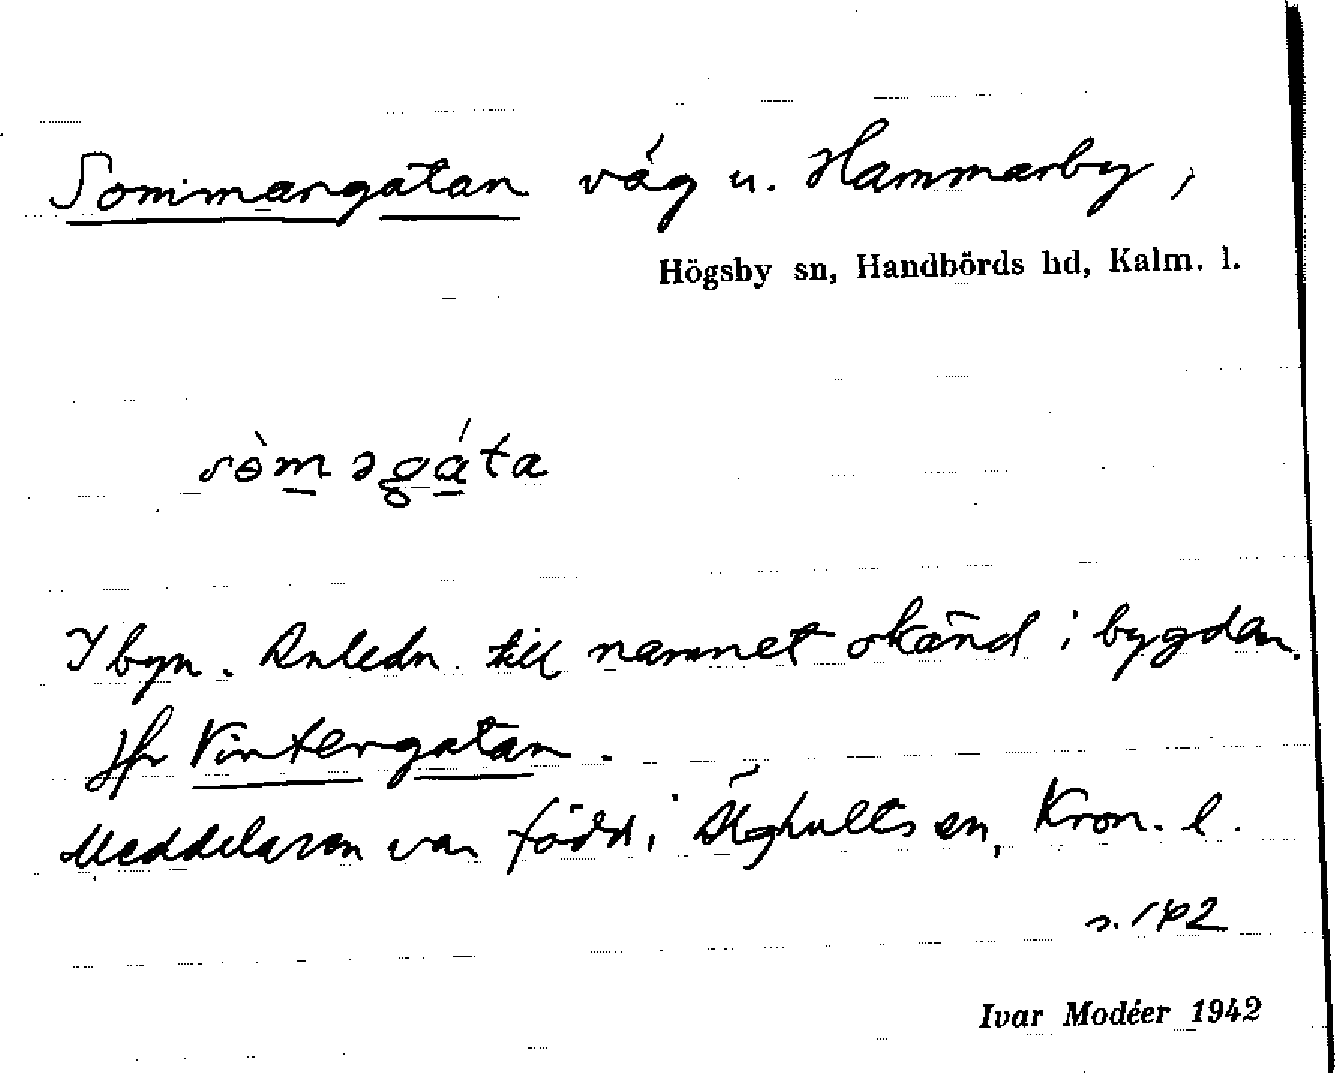 Sommargatan väg u. Hammarby,
Högsby sn, Handbörds hd, Kalm. l.
sòməgáta
I byn. Anledn. till namnet okänd i bygden.
Jfr Vintergatan.
Meddelaren var född i Älghults sn, Kron. l.
s. 142
Ivar Modéer 1942